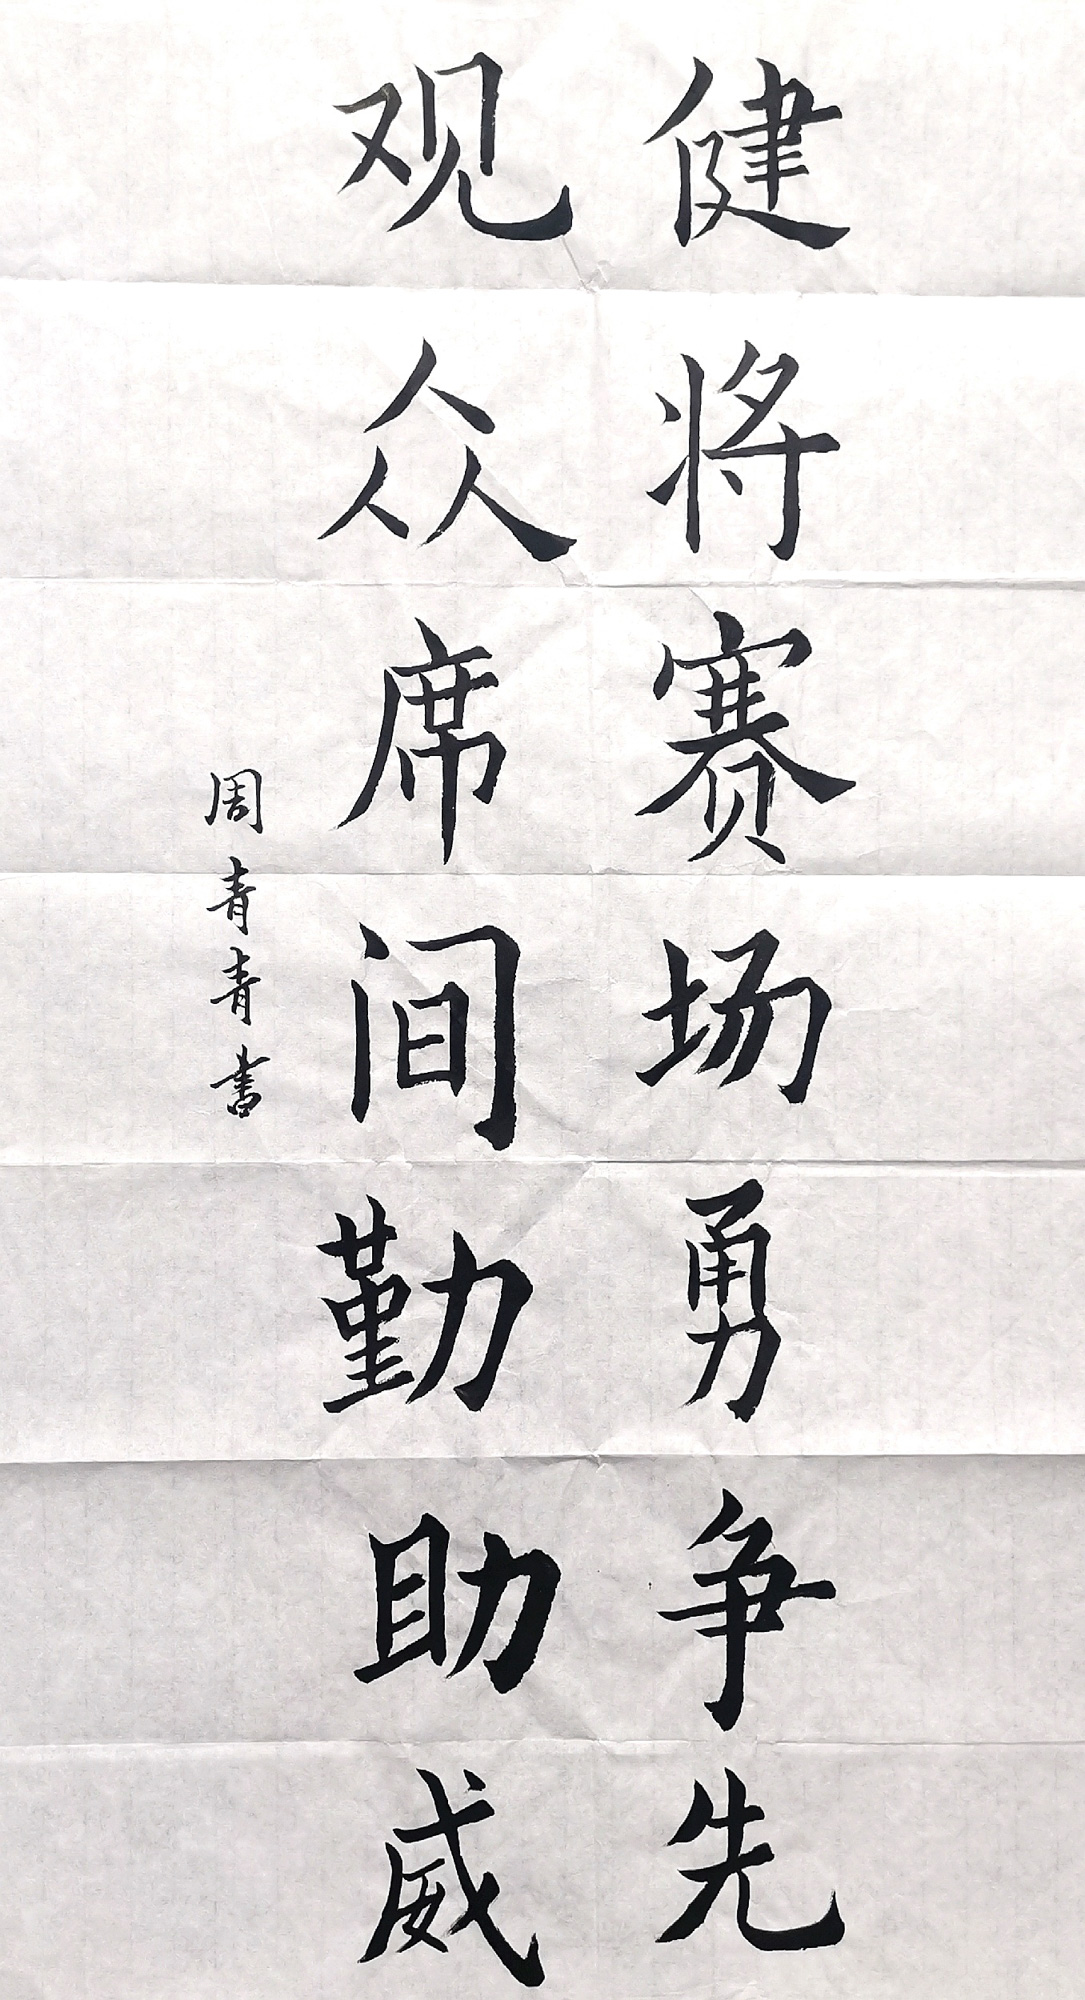 健将赛场勇争先
观众席间勤助威
周青青书